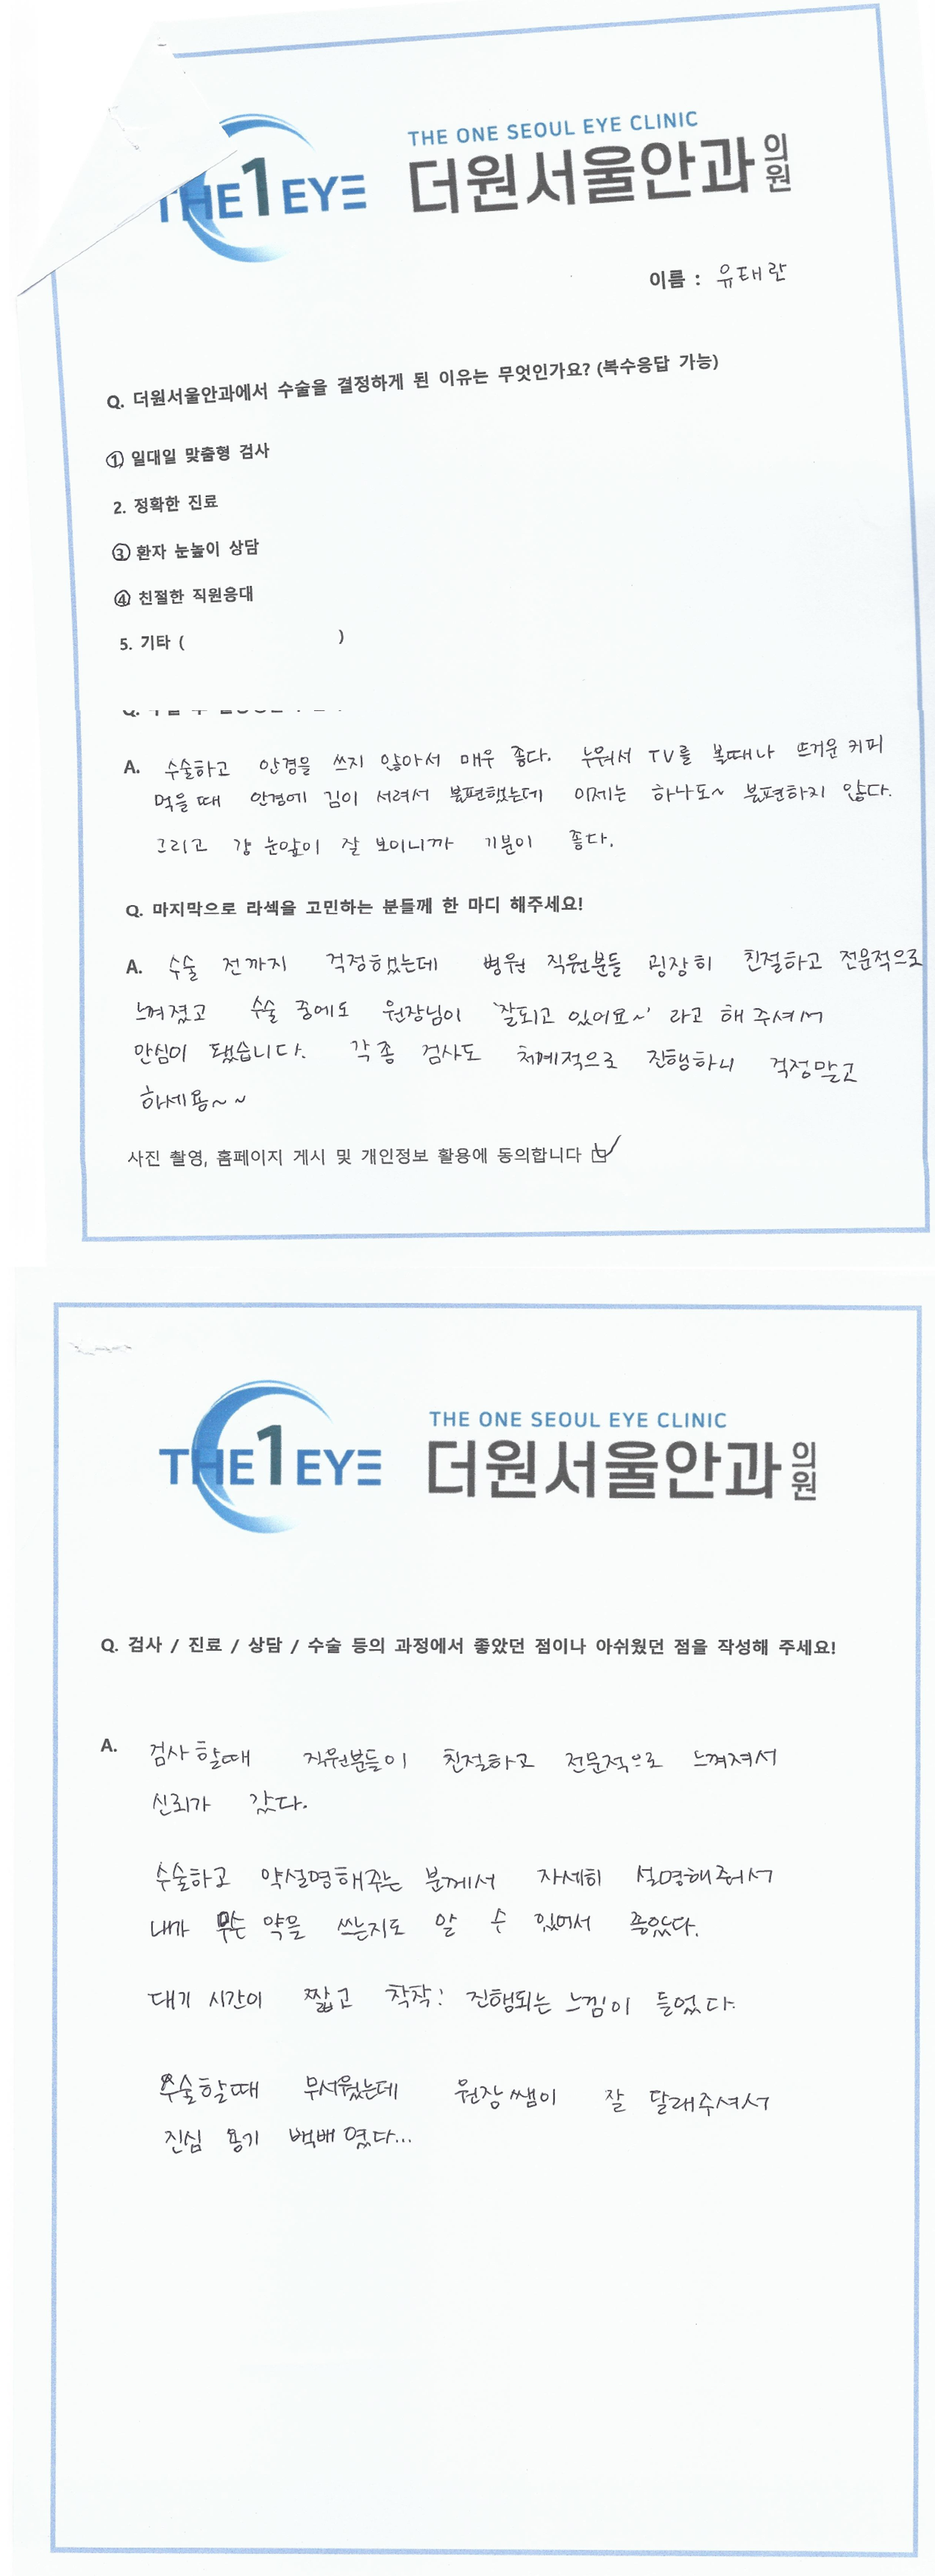 THE ONE SEOUL EYE CLINIC
THE1EYE 더원서울안과의원
이름 : 유태란
Q. 더원서울안과에서 수술을 결정하게 된 이유는 무엇인가요? (복수응답 가능)
1. 일대일 맞춤형 검사
2. 정확한 진료
3. 환자 눈높이 상담
4. 친절한 직원응대
5. 기타 ( )
A. 수술하고 안경을 쓰지 않아서 매우 좋다. 누워서 TV를 볼때나 뜨거운 커피
먹을 때 안경에 김이 서려서 불편했는데 이제는 하나도~ 불편하지 않다.
그리고 걍 눈앞이 잘 보이니까 기분이 좋다.
Q. 마지막으로 라섹을 고민하는 분들께 한 마디 해주세요!
A. 수술 전까지 걱정했는데 병원 직원분들 굉장히 친절하고 전문적으로
느껴졌고 수술 중에도 원장님이 '잘되고 있어요~' 라고 해 주셔서
안심이 됐습니다. 각종 검사도 체계적으로 진행하니 걱정말고
하세용~~
사진 촬영, 홈페이지 게시 및 개인정보 활용에 동의합니다
THE ONE SEOUL EYE CLINIC
THE1EYE 더원서울안과의원
Q. 검사 / 진료 / 상담 / 수술 등의 과정에서 좋았던 점이나 아쉬웠던 점을 작성해 주세요!
A. 검사할때 직원분들이 친절하고 전문적으로 느껴져서
신뢰가 갔다.
수술하고 약설명해주는 분께서 자세히 설명해줘서
내가 무슨 약을 쓰는지도 알 수 있어서 좋았다.
대기 시간이 짧고 착착! 진행되는 느낌이 들었다.
수술할때 무서웠는데 원장쌤이 잘 달래주셔서
진심 용기 백배였다...